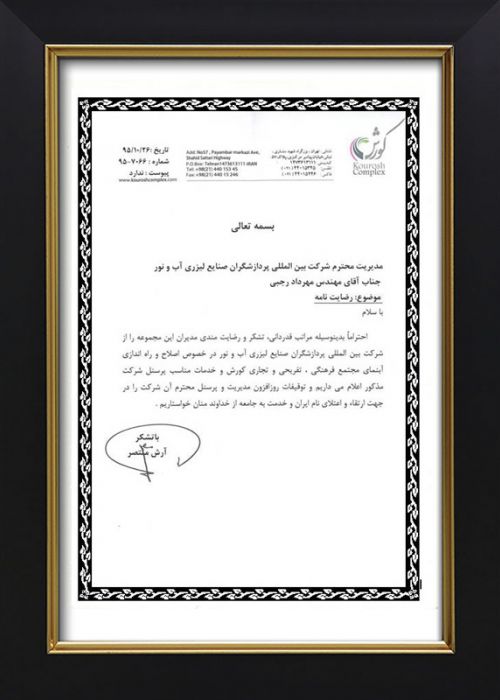 کورش
Kourosh
Complex
تاریخ: ۹۵/۱۰/۲۶
شماره: ۹۵-۷۰۶۶
پیوست: ندارد
www.kouroshcomplex.com
Add: No57, Payambar markazi Ave,
Shahid Sattari Highway
P.O Box: Tehran1473613111 IRAN
Tel: +98(21) 440 153 45
Fax: +98(21) 440 15 246
بسمه تعالی
مدیریت محترم شرکت بین المللی پردازشگران صنایع لیزری آب و نور
جناب آقای مهندس مهرداد رجبی
موضوع: رضایت نامه
با سلام
احتراماً بدینوسیله مراتب قدردانی، تشکر و رضایت مندی مدیران این مجموعه را از
شرکت بین المللی پردازشگران صنایع لیزری آب و نور در خصوص اصلاح و راه اندازی
آبنمای مجتمع فرهنگی ، تفریحی و تجاری کورش و خدمات مناسب پرسنل شرکت
مذکور اعلام می داریم و توفیقات روزافزون مدیریت و پرسنل محترم آن شرکت را در
جهت ارتقاء و اعتلای نام ایران و خدمت به جامعه از خداوند منان خواستاریم .
باتشکر
آرش منتصر